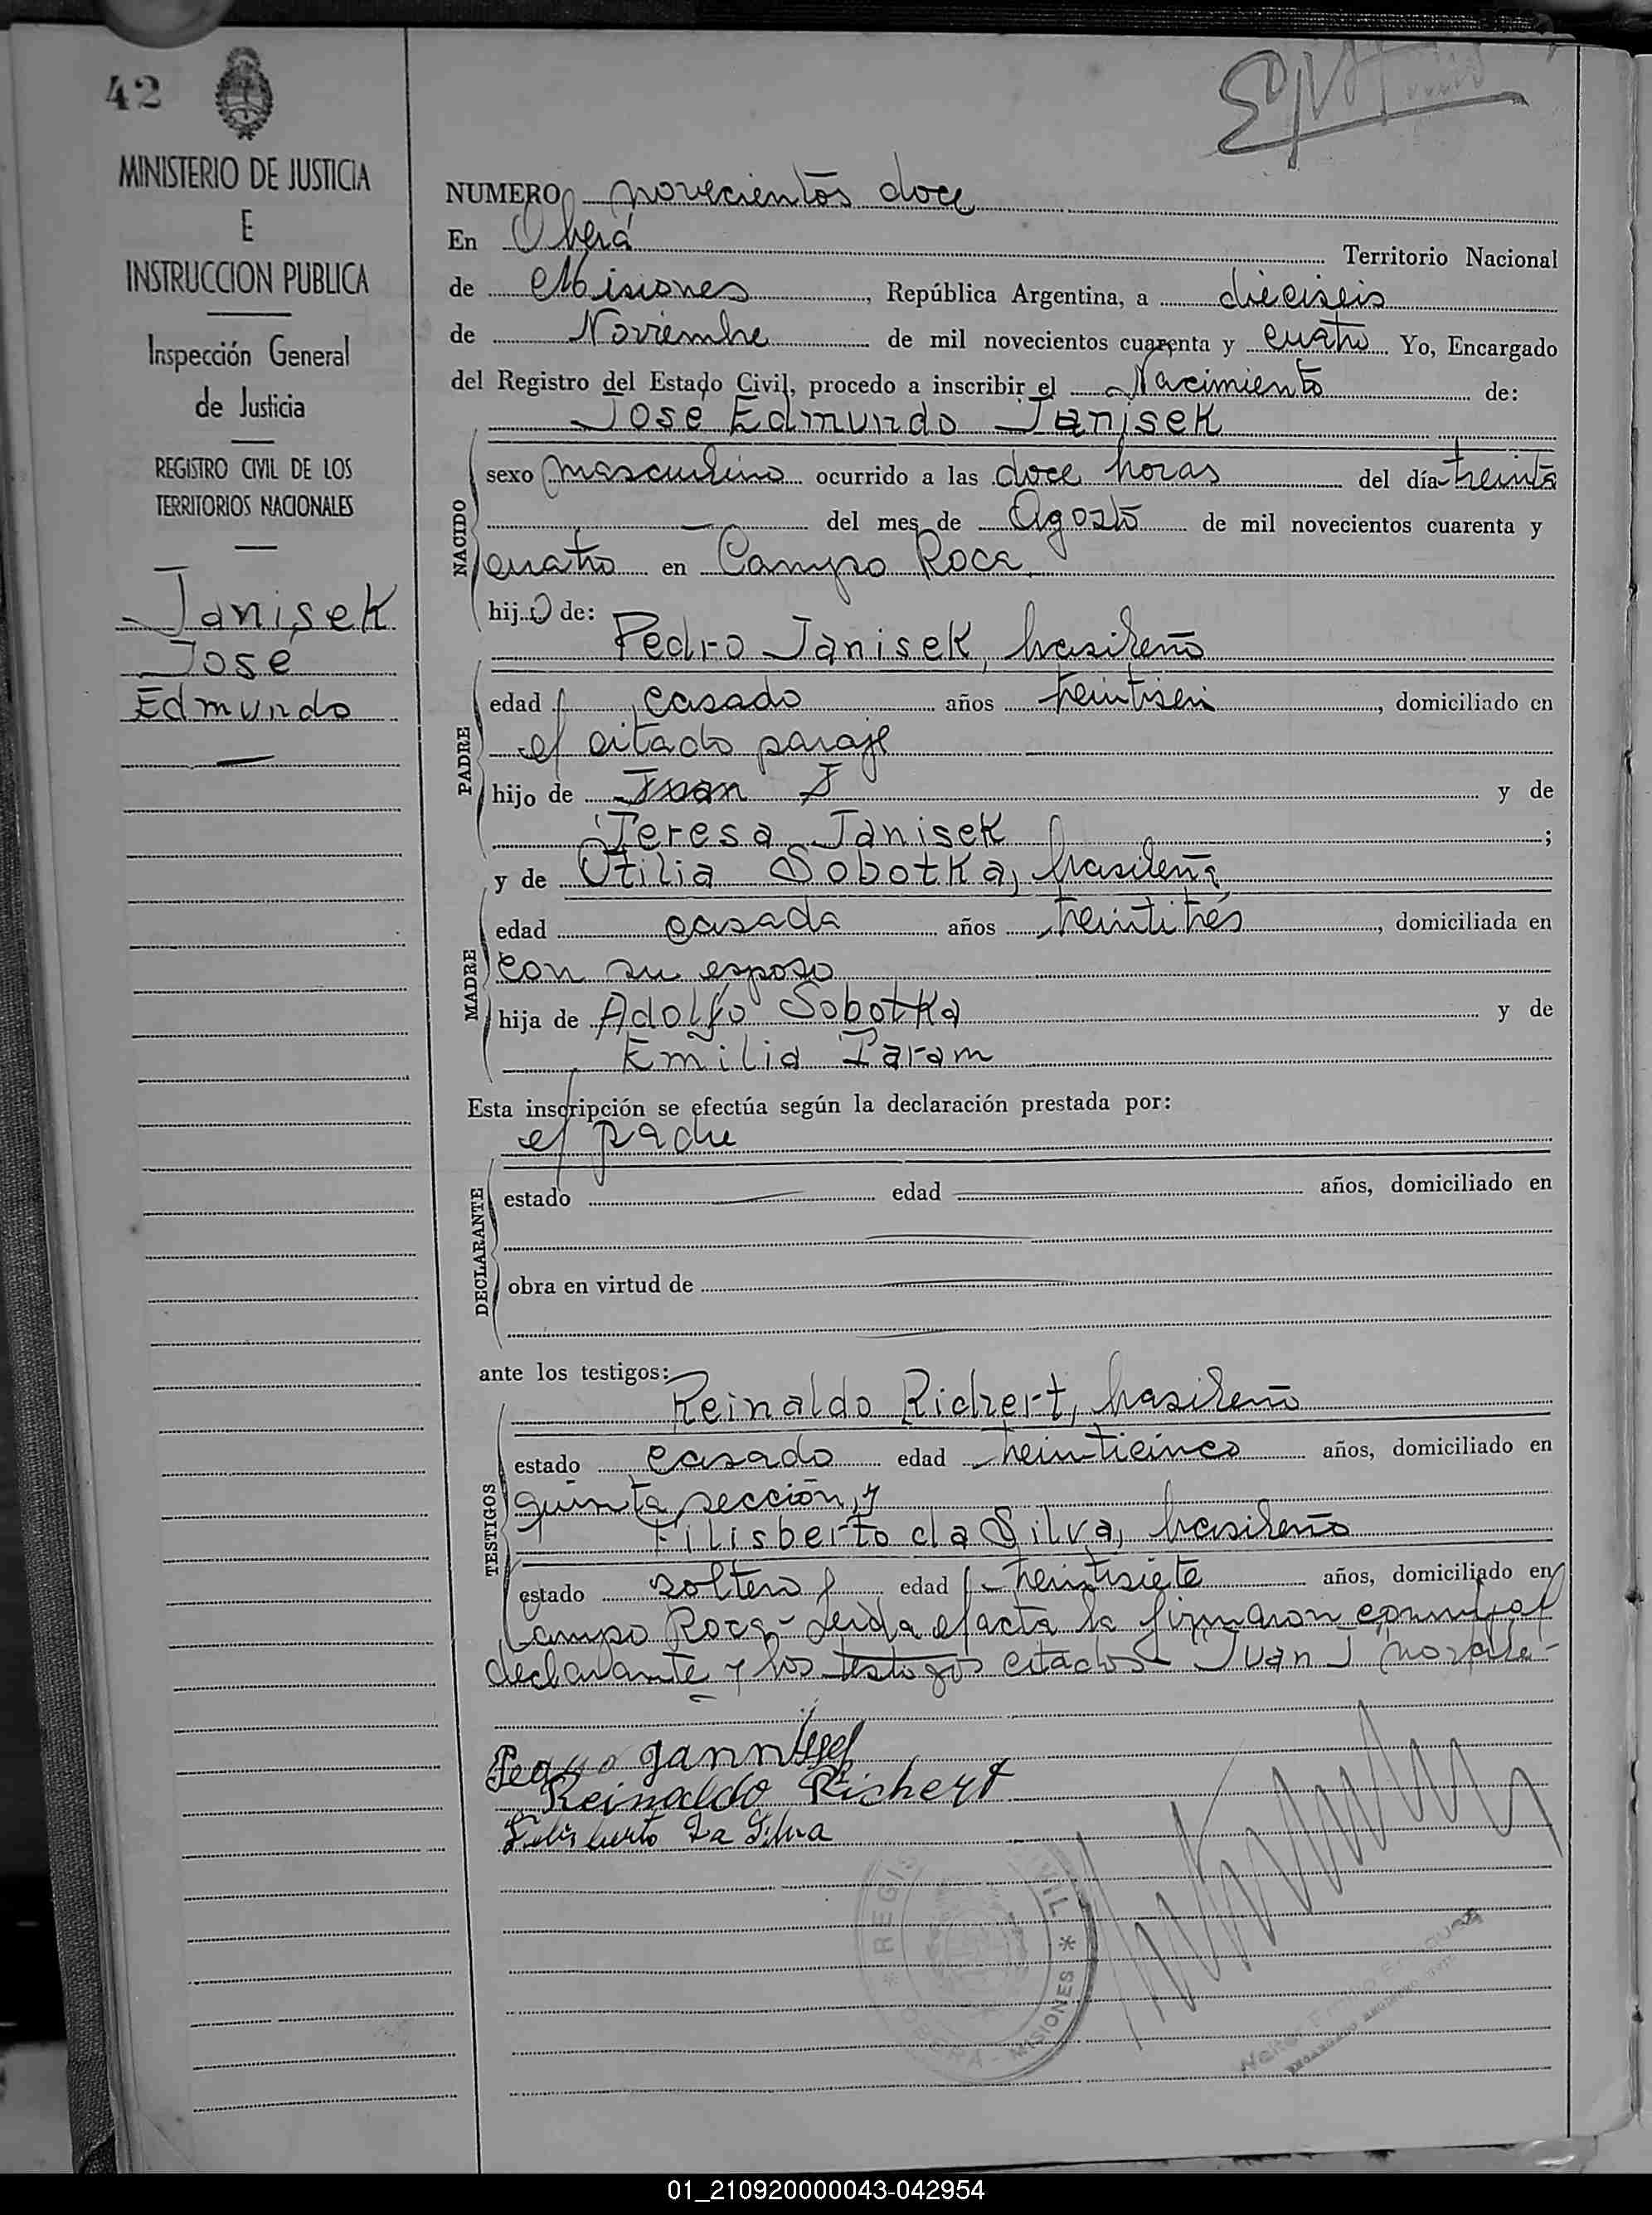 42
MINISTERIO DE JUSTICIA
E
INSTRUCCION PUBLICA
Inspección General
de Justicia
REGISTRO CIVIL DE LOS
TERRITORIOS NACIONALES
Janisek
José
Edmundo
NUMERO novecientos doce
En Oberá Territorio Nacional
de Misiones, República Argentina, a dieciseis
de Noviembre de mil novecientos cuarenta y cuatro Yo, Encargado
del Registro del Estado Civil, procedo a inscribir el Nacimiento de:
José Edmundo Janisek
NACIDO
sexo masculino ocurrido a las doce horas del día treinta
del mes de Agosto de mil novecientos cuarenta y
cuatro en Campo Roca
hijo de:
Pedro Janisek, brasileño
PADRE
edad casado años treintiseis, domiciliado en
el citado paraje
hijo de Juan J y de
Teresa Janisek;
y de Otilia Sobotka, brasileña
MADRE
edad casada años treintitrés, domiciliada en
con su esposo
hija de Adolfo Sobotka y de
Emilia Param
Esta inscripción se efectúa según la declaración prestada por:
el padre
DECLARANTE
estado edad años, domiciliado en
obra en virtud de
ante los testigos:
Reinaldo Richert, brasileño
TESTIGOS
estado casado edad treinticinco años, domiciliado en
quinta sección, y
Filisberto da Silva, brasileño
estado soltero edad treintisiete años, domiciliado en
Campo Roca - Leida el acta la firmaron conmigo el
declarante y los testigos citados - Juan J no vale -
Pedro
Reinaldo Richert
Felisberto Da Silva
* REGIS CIVIL *
OBERA - MISIONES
01_210920000043-042954